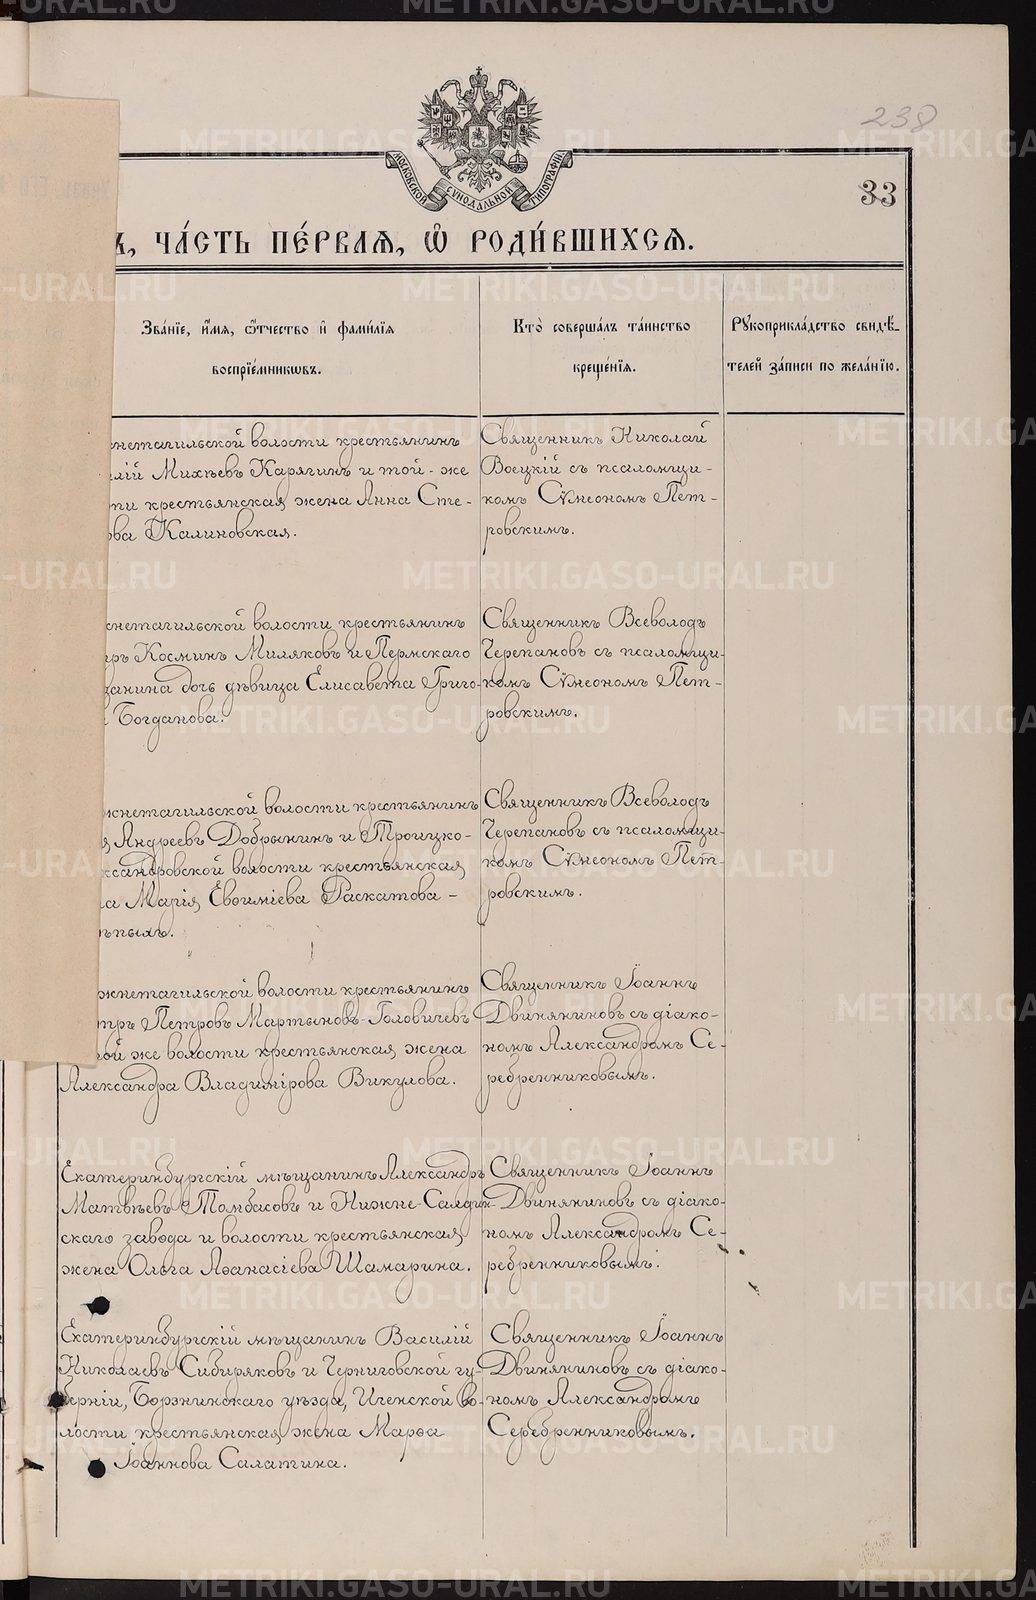 METRIKI.GASO-URAL.RU
238
МОСКОВСКОЙ СѴНОДАЛЬНОЙ ТИПОГРАФІИ.
33
ЧА́СТЬ ПЕ́РВАѦ, Ѡ҆ РОДИ́ВШИХСѦ.
Зва́нїе, и҆́мѧ, ѻ҆́тчество и҆ фами́лїѧ
воспрїе́мникѡвъ.
Кто̀ соверша́лъ та́инство
креще́нїѧ.
Рꙋкоприкла́дство свидѣ́-
телей за́писи по жела́нїю.
нетагильской волости крестьянинъ
лій Михѣевъ Карягинъ и той-же
ти крестьянская жена Анна Сте-
ова Калиновская.
Священникъ Николай
Воецкій съ псаломщи-
комъ Сѵмеономъ Пет-
ровскимъ.
нетагильской волости крестьянинъ
ръ Косминъ Миляковъ и Пермскаго
щанина дочь дѣвица Елисавета Григо-
Богданова.
Священникъ Всеволодъ
Черепановъ съ псаломщи-
комъ Сѵмеономъ Пет-
ровскимъ.
жнетагильской волости крестьянинъ
я Андреевъ Добрынинъ и Троицко-
ксандровской волости крестьянская
на Марія Евѳиміева Раскатова –
ъпыхъ.
Священникъ Всеволодъ
Черепановъ съ псаломщи-
комъ Сѵмеономъ Пет-
ровскимъ.
жнетагильской волости крестьянинъ
тръ Петровъ Мартыновъ-Головичевъ
той же волости крестьянская жена
Александра Владимірова Викулова.
Священникъ Іоаннъ
Двиняниновъ съ діако-
номъ Александромъ Се-
ребренниковымъ.
Екатеринбургскій мѣщанинъ Александръ
Матвѣевъ Томбасовъ и Нижне-Салдин-
скаго завода и волости крестьянская
жена Ольга Аѳанасіева Шамарина.
Священникъ Іоаннъ
Двиняниновъ съ діако-
номъ Александромъ Се-
ребренниковымъ.
Екатеринбургскій мѣщанинъ Василій
Николаевъ Сибиряковъ и Черниговской гу-
берніи, Борзнинскаго уѣзда, Иченской во-
лости крестьянская жена Марѳа
Іоаннова Салатина.
Священникъ Іоаннъ
Двиняниновъ съ діако-
номъ Александромъ
Серебренниковымъ.